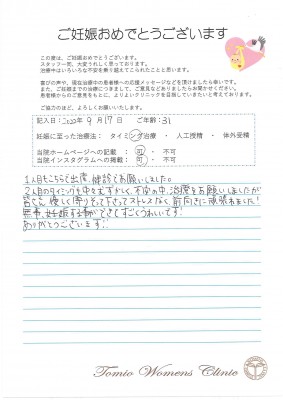 ご妊娠おめでとうございます
この度は、ご妊娠おめでとうございます。
スタッフ一同、大変うれしく思っております。
治療中はいろいろな不安を乗り越えてこられたことと思います。
喜びの声や、現在治療中の患者様への応援メッセージなどを頂けましたら幸いです。
また、ご妊娠までの治療につきまして、ご意見などありましたらお聞かせください。
患者様からのご意見をもとに、よりよいクリニックを目指していきたいと考えております。
ご協力のほど、よろしくお願いいたします。
記入日：2022年 9月17日 ご年齢：31
妊娠に至った治療法： タイミング治療 ・ 人工授精 ・ 体外受精
当院ホームページへの記載 ： 可 ・ 不可
当院インスタグラムへの掲載 ： 可 ・ 不可
1人目もこちらで出産、健診でお願いしました。
2人目のタイミングも中々むずかしく、不安の中、治療をお願いしましたが
皆さん優しく寄りそって下さってストレスなく、前向きに頑張れました!
無事、妊娠する事ができてすごくうれしいです!
ありがとうございます!
Tomio Womens Clinic